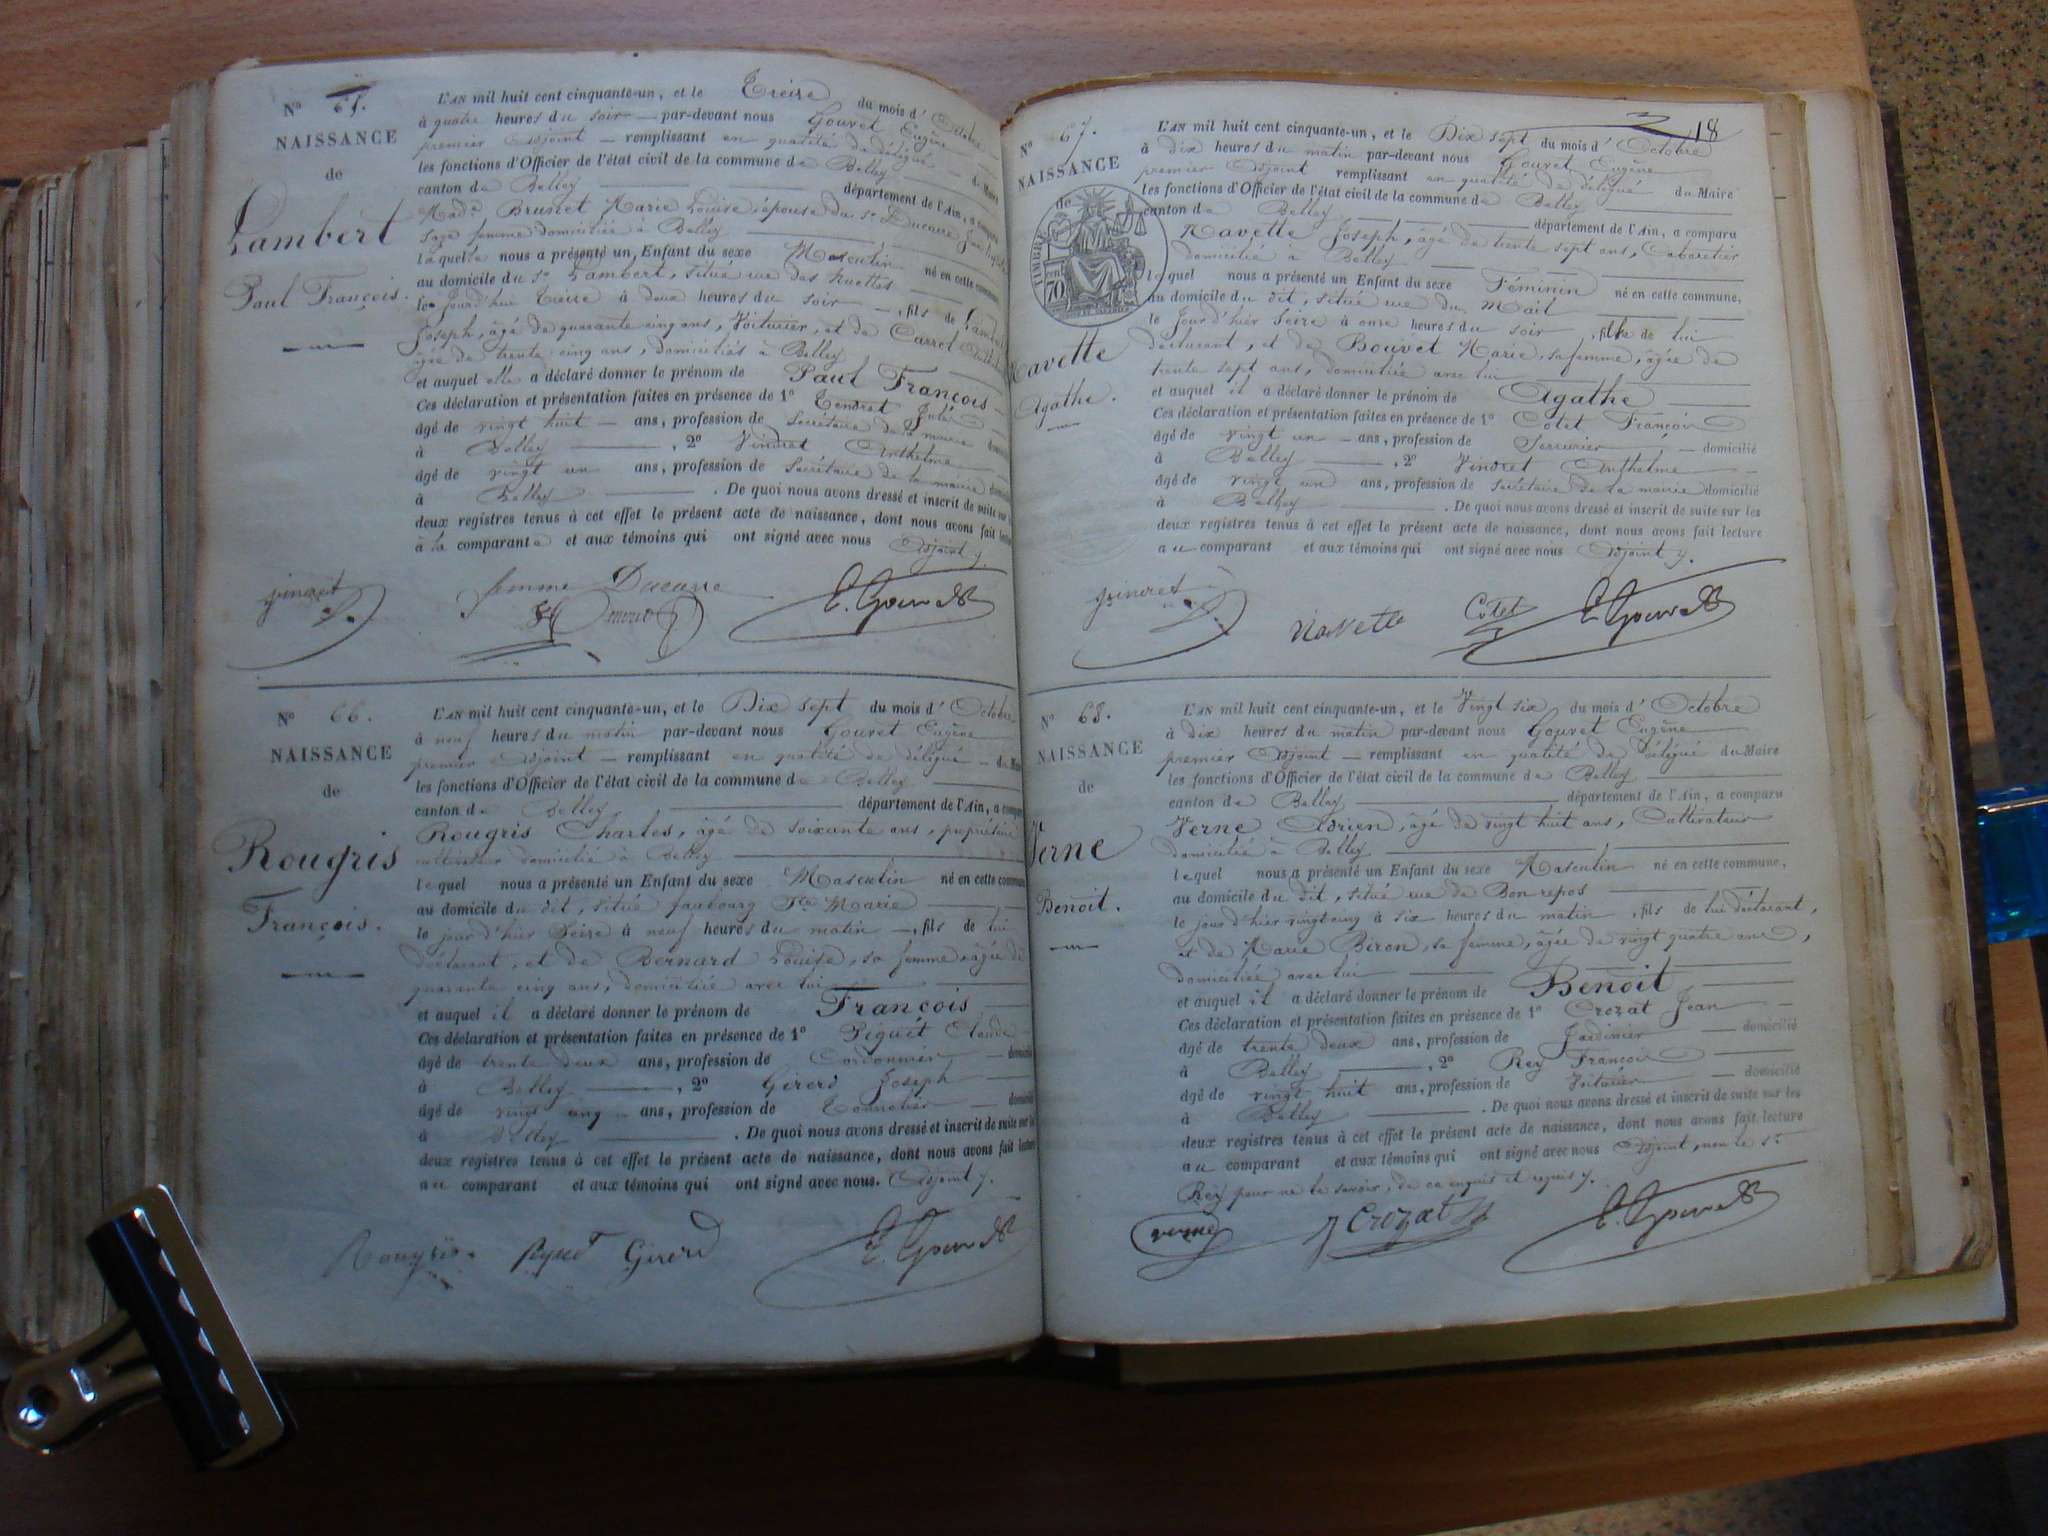 N° 65.
NAISSANCE
de
Lambert
Paul François.
L'AN mil huit cent cinquante-un, et le Treize du mois d'Octobre
à quatre heures du soir par-devant nous Gouvet Eugène
premier Adjoint remplissant en qualité de délégué du Maire
les fonctions d'Officier de l'état civil de la commune de Belley
canton de Belley département de l'Ain, a comparu
Mad.e Brunet Marie Louise, épouse du Sr Ducarre
sage femme domiciliée à Belley
laquelle nous a présenté un Enfant du sexe Masculin né en cette commune,
au domicile du Sr Lambert, situé rue des huettes
le Jourd'hui Treize à deux heures du soir, fils de Lambert
Joseph, âgé de quarante cinq ans, Voiturier, et de Carrel
âgée de trente cinq ans, domiciliés à Belley
et auquel elle a déclaré donner le prénom de Paul François
Ces déclaration et présentation faites en présence de 1° Tendret Jules
âgé de vingt huit ans, profession de Secrétaire de la mairie domicilié
à Belley, 2° Vindret Anthelme
âgé de vingt un ans, profession de Secrétaire de la mairie domicilié
à Belley. De quoi nous avons dressé et inscrit de suite sur les
deux registres tenus à cet effet le présent acte de naissance, dont nous avons fait lecture
à la comparante et aux témoins qui ont signé avec nous Adjoint y.
femme Ducarre E. Gouvet
N° 66.
NAISSANCE
de
Rougris
François.
L'AN mil huit cent cinquante-un, et le Dix sept du mois d'Octobre
à neuf heures du matin par-devant nous Gouvet Eugène
premier Adjoint remplissant en qualité de délégué du Maire
les fonctions d'Officier de l'état civil de la commune de Belley
canton de Belley département de l'Ain, a comparu
Rougris Charles, âgé de soixante ans, propriétaire
cultivateur domicilié à Belley
lequel nous a présenté un Enfant du sexe Masculin né en cette commune
au domicile du dit, situé faubourg Ste Marie
le jour d'hier Seize à neuf heures du matin, fils de lui
déclarant, et de Bernard Louise, sa femme, âgée de
quarante cinq ans, domiciliée avec lui
et auquel il a déclaré donner le prénom de François
Ces déclaration et présentation faites en présence de 1° Piguet Claude
âgé de trente deux ans, profession de Cordonnier domicilié
à Belley, 2° Girerd Joseph
âgé de vingt cinq ans, profession de Tonnelier domicilié
à Belley. De quoi nous avons dressé et inscrit de suite sur les
deux registres tenus à cet effet le présent acte de naissance, dont nous avons fait lecture
au comparant et aux témoins qui ont signé avec nous. Adjoint y.
Rougris Piguet Girerd E. Gouvet
18
N° 67.
NAISSANCE
de
TIMBRE
70
Navette
Agathe.
L'AN mil huit cent cinquante-un, et le Dix sept du mois d'Octobre
à dix heures du matin par-devant nous Gouvet Eugène
premier Adjoint remplissant en qualité de délégué du Maire
les fonctions d'Officier de l'état civil de la commune de Belley
canton de Belley département de l'Ain, a comparu
Navette Joseph, âgé de trente sept ans, Cabaretier
domicilié à Belley
lequel nous a présenté un Enfant du sexe Féminin né en cette commune,
au domicile du dit, situé rue du Mail
le Jour d'hier Seize à onze heures du soir, fille de lui
déclarant, et de Bouvet Marie, sa femme, âgée de
trente sept ans, domiciliée avec lui
et auquel il a déclaré donner le prénom de Agathe
Ces déclaration et présentation faites en présence de 1° Cotet François
âgé de vingt un ans, profession de Serrurier domicilié
à Belley, 2° Vindret Anthelme
âgé de vingt un ans, profession de Secrétaire de la mairie domicilié
à Belley. De quoi nous avons dressé et inscrit de suite sur les
deux registres tenus à cet effet le présent acte de naissance, dont nous avons fait lecture
au comparant et aux témoins qui ont signé avec nous Adjoint y.
Navette Cotet E. Gouvet
N° 68.
NAISSANCE
de
Verne
Benoit.
L'AN mil huit cent cinquante-un, et le Vingt six du mois d'Octobre
à dix heures du matin par-devant nous Gouvet Eugène
premier Adjoint remplissant en qualité de délégué du Maire
les fonctions d'Officier de l'état civil de la commune de Belley
canton de Belley département de l'Ain, a comparu
Verne Adrien, âgé de vingt huit ans, Cultivateur
domicilié à Belley
lequel nous a présenté un Enfant du sexe Masculin né en cette commune,
au domicile du dit, situé rue de Bon repos
le jour d'hier vingt cinq à six heures du matin, fils de lui déclarant,
et de Marie Biron, sa femme, âgée de vingt quatre ans,
domiciliée avec lui
et auquel il a déclaré donner le prénom de Benoit
Ces déclaration et présentation faites en présence de 1° Crozat Jean
âgé de trente deux ans, profession de Jardinier domicilié
à Belley, 2° Rey François
âgé de vingt huit ans, profession de Voiturier domicilié
à Belley. De quoi nous avons dressé et inscrit de suite sur les
deux registres tenus à cet effet le présent acte de naissance, dont nous avons fait lecture
au comparant et aux témoins qui ont signé avec nous Adjoint, non le Sr
Rey pour ne le savoir, de ce enquis et requis y.
verne J Crozat E. Gouvet